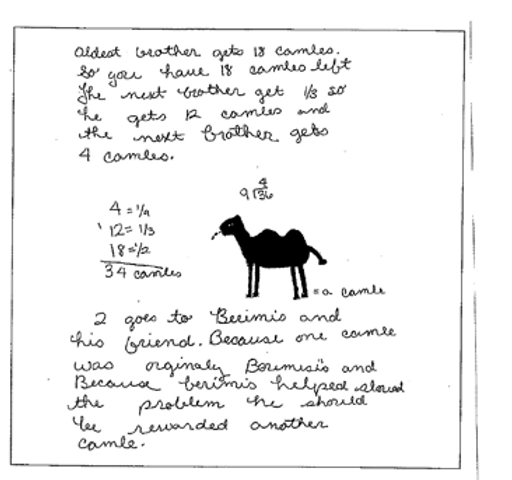 Oldest brother gets 18 camles.
So you have 18 camles left
The next brother get 1/3 so
he gets 12 camles and
the next brother gets
4 camles.
4
9 √36
4 = 1/9
12 = 1/3
18 = 1/2
34 camles
= a camle
2 goes to Berimis and
his friend. Because one camle
was orginaly Beremisis and
Because berimis helped
the problem he should
be rewarded another
camle.